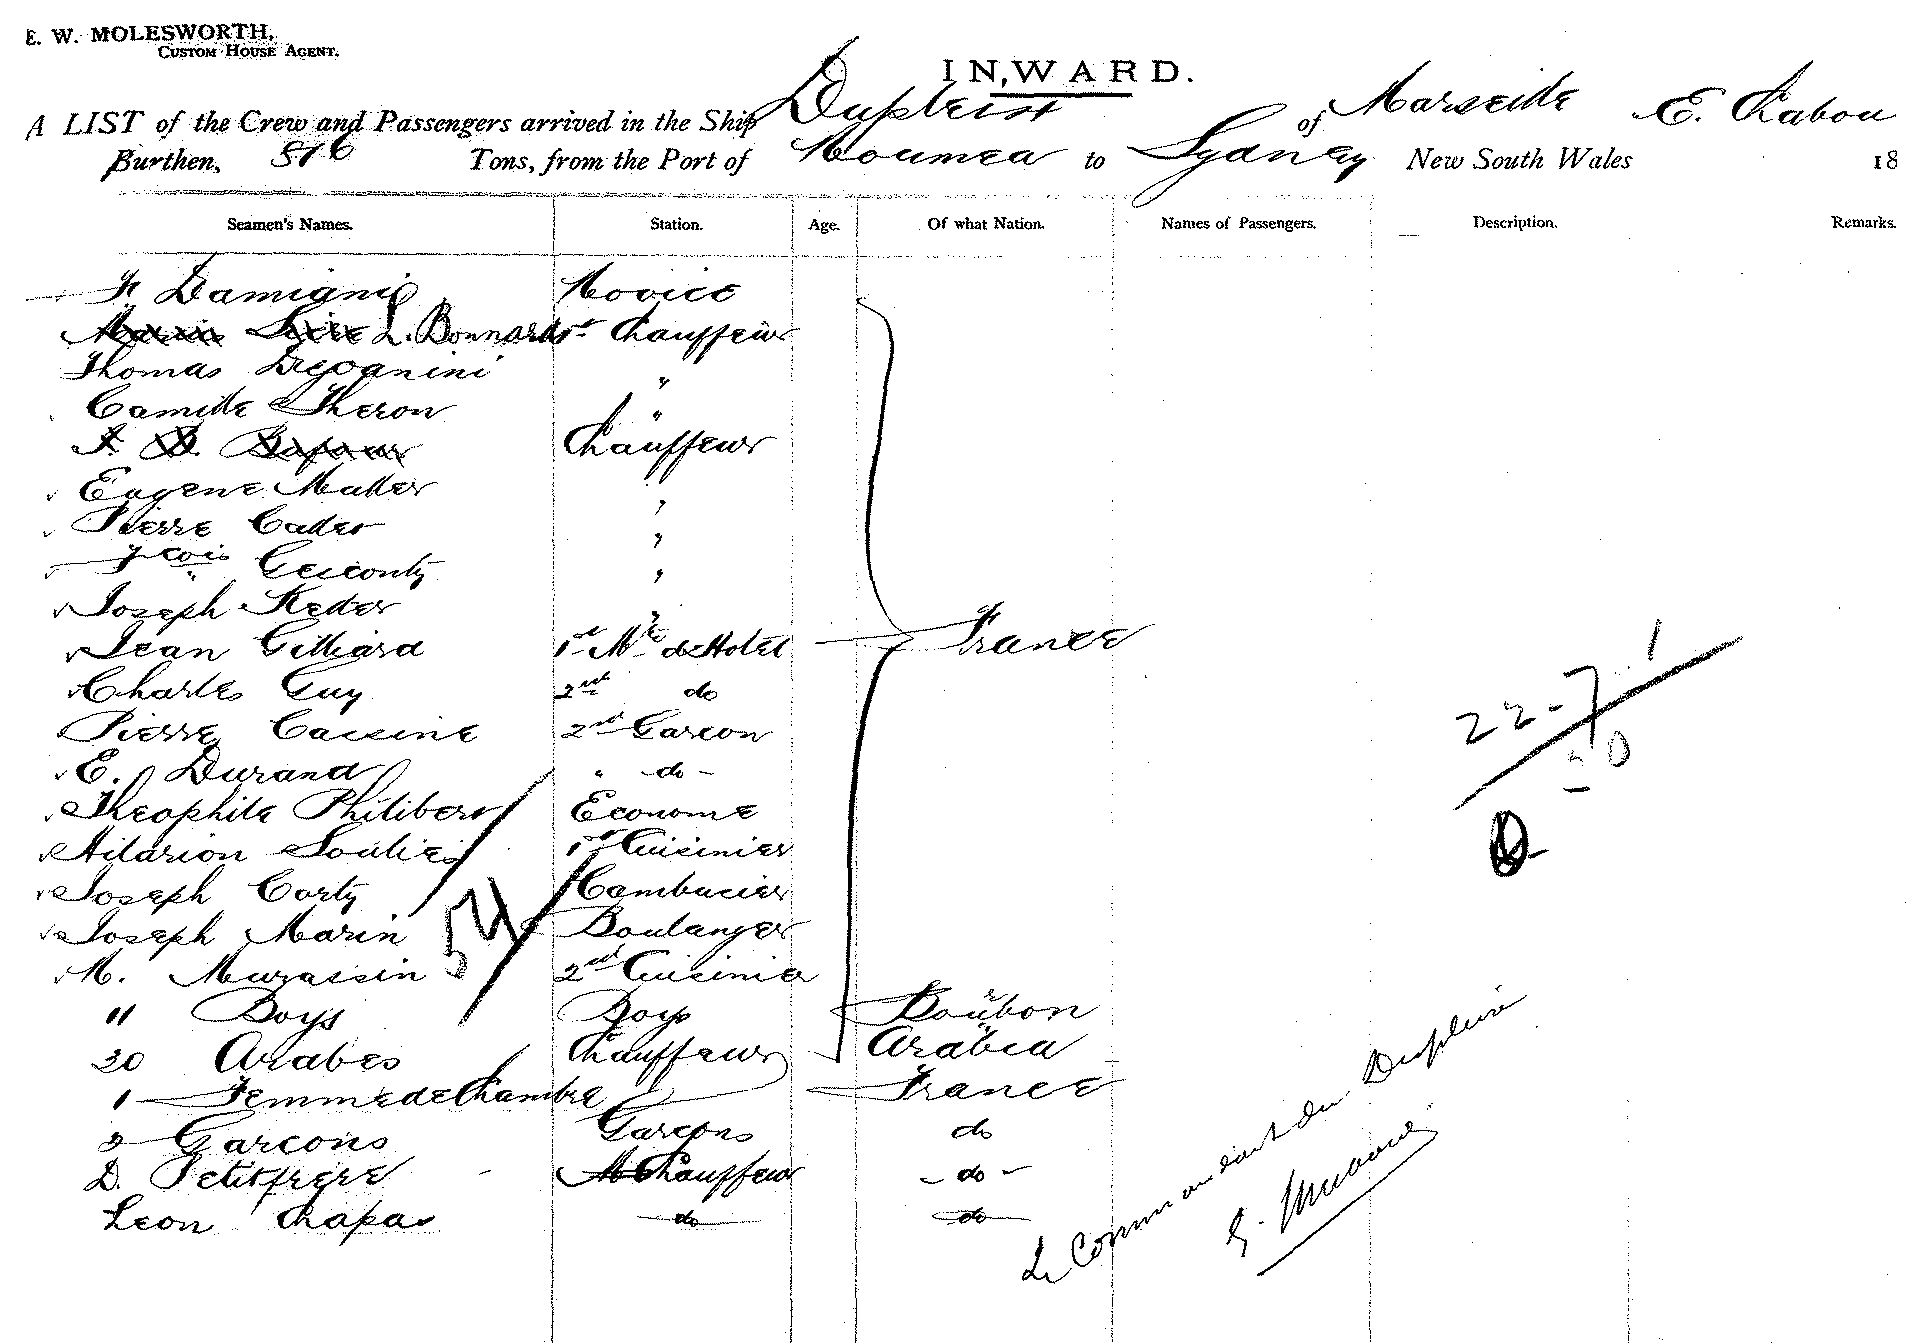 E. W. MOLESWORTH,
CUSTOM HOUSE AGENT.
INWARD.
A LIST of the Crew and Passengers arrived in the Ship Dupleix of Marseille E. Rabou
Burthen, 516 Tons, from the Port of Noumea to Sydney New South Wales 18
Seamen's Names. Station. Age. Of what Nation. Names of Passengers. Description. Remarks.
Fr Damiani Novice
L. Bonnard 1st Chauffeur
Thomas "
Camille Theron "
Chauffeur
Eugene Muller "
Pierre Cader "
Fcois "
Joseph Keder "
Jean Gilliard 1st Me de Hotel France
Charles Guy 2nd do
Pierre Caisine 2nd Garcon
E. Durand " do -
Theophile Philibert Econome
Hilarion Soulies 1st Cuisinier
Joseph Corty Cambucier
Joseph Marin Boulanger
M. Murassin 2nd Cuisinier
11 Boys Boys Bourbon
20 Arabes Chauffeurs Arabia
1 Femme de Chambre France
2 Garcons Garcons do
D. Petitfrere Chauffeur - do -
Leon Chapas do do
54
22-7 1
Le Commandant du Dupleix